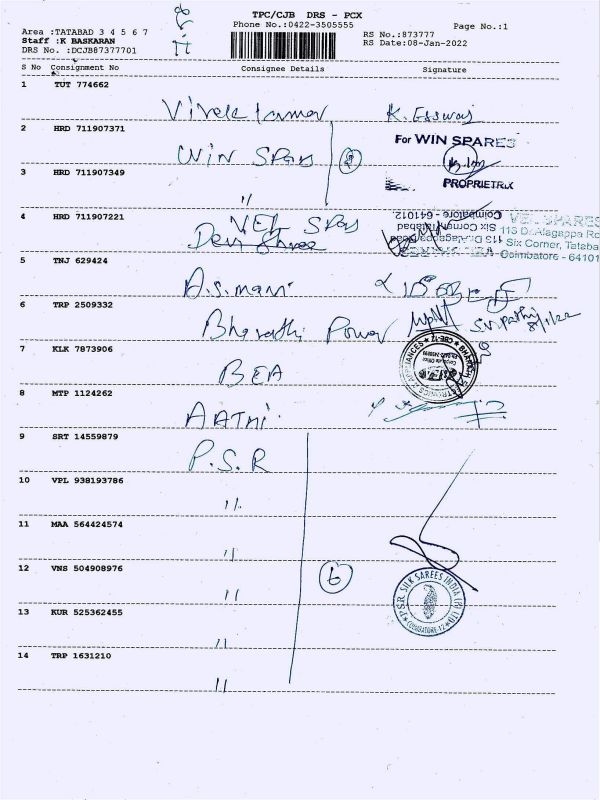 TPC/CJB DRS - PCX
Phone No.:0422-3505555
Page No.:1
Area :TATABAD 3 4 5 6 7
Staff :K BASKARAN
DRS No. :DCJB87377701
RS No.:873777
RS Date:08-Jan-2022
S No Consignment No Consignee Details Signature
1 TUT 774662
Vivek kumar K. Eswari
2 HRD 711907371
WIN SPARES
For WIN SPARES
PROPRIETRIX
3 HRD 711907349
"
4 HRD 711907221
VEL SPARES
Devi Shree
VEL SPARES
113 Dr.Alagappa Ro
Six Corner, Tataba
Coimbatore - 64101
Six Corner, Tatabad
Coimbatore - 641012.
5 TNJ 629424
A.S. mani
6 TRP 2509332
Bharathi Power
8/1/22
7 KLK 7873906
BEA
8 MTP 1124262
AATHI.
9 SRT 14559879
P.S.R
10 VPL 938193786
"
11 MAA 564424574
"
12 VNS 504908976
" 6
P.S.R. SILK SAREES INDIA (P) LTD.
COIMBATORE-12
13 KUR 525362455
"
14 TRP 1631210
"